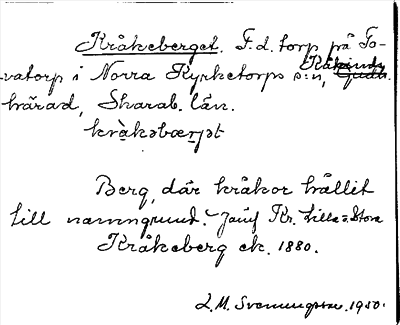 Kråkeberget. F.d. torp på To-
vatorp i Norra Kyrketorps s:n, Kåkinds
härad, Skarab. län.
kràkəbærjət
Berg, där kråkor hållit
till namngrund. Jämf Kr. Lilla o Stora
Kråkeberg ek. 1880.
L.M. Svenungsson. 1950.